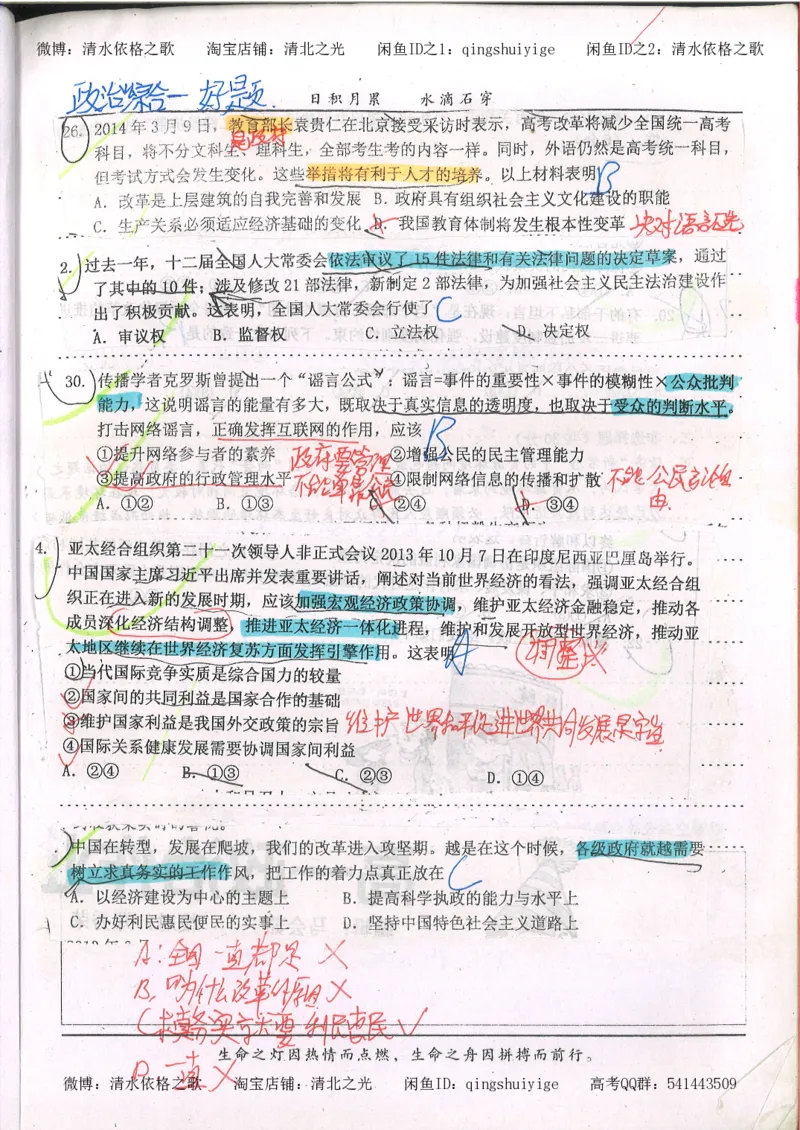 微博：清水依格之歌 淘宝店铺：清北之光 闲鱼ID之1：qingshuiyige 闲鱼ID之2：清水依格之歌
政治综合一 好题.
日积月累 水滴石穿
26. 2014年3月9日，教育部长袁贵仁在北京接受采访时表示，高考改革将减少全国统一高考
是政府
科目，将不分文科生、理科生，全部考生考的内容一样。同时，外语仍然是高考统一科目，
但考试方式会发生变化。这些举措将有利于人才的培养。以上材料表明 B
A．改革是上层建筑的自我完善和发展 B．政府具有组织社会主义文化建设的职能
C．生产关系必须适应经济基础的变化 D．我国教育体制将发生根本性变革
2. 过去一年，十二届全国人大常委会依法审议了15件法律和有关法律问题的决定草案，通过
了其中的10件；涉及修改21部法律，新制定2部法律，为加强社会主义民主法治建设作
出了积极贡献。这表明，全国人大常委会行使了 C
A．审议权 B．监督权 C．立法权 D．决定权
30. 传播学者克罗斯曾提出一个“谣言公式”：谣言=事件的重要性×事件的模糊性×公众批判
能力，这说明谣言的能量有多大，既取决于真实信息的透明度，也取决于受众的判断水平。
打击网络谣言，正确发挥互联网的作用，应该 B
①提升网络参与者的素养 政府要管理 ②增强公民的民主管理能力
③提高政府的行政管理水平 不能单靠公民 ④限制网络信息的传播和扩散 不能 公民言论自
由.
A．①② B．①③ C．②④ D．③④
4. 亚太经合组织第二十一次领导人非正式会议2013年10月7日在印度尼西亚巴厘岛举行。
中国国家主席习近平出席并发表重要讲话，阐述对当前世界经济的看法，强调亚太经合组
织正在进入新的发展时期，应该加强宏观经济政策协调，维护亚太经济金融稳定，推动各
成员深化经济结构调整，推进亚太经济一体化进程，维护和发展开放型世界经济，推动亚
太地区继续在世界经济复苏方面发挥引擎作用。这表明 A 调整×
①当代国际竞争实质是综合国力的较量
②国家间的共同利益是国家合作的基础
③维护国家利益是我国外交政策的宗旨 维护世界和平促进世界共同发展是宗旨
④国际关系健康发展需要协调国家间利益
A．②④ B．①③ C．②③ D．①④
中国在转型，发展在爬坡，我们的改革进入攻坚期。越是在这个时候，各级政府就越需要
树立求真务实的工作作风，把工作的着力点真正放在 C
A．以经济建设为中心的主题上 B．提高科学执政的能力与水平上
C．办好利民惠民便民的实事上 D．坚持中国特色社会主义道路上
A: 一直都是 ×
B. 为什么改革 ×
C 求真务实 要利民惠民 ✓
D 一直 ×
生命之灯因热情而点燃，生命之舟因拼搏而前行。
微博：清水依格之歌 淘宝店铺：清北之光 闲鱼ID：qingshuiyige 高考QQ群：541443509